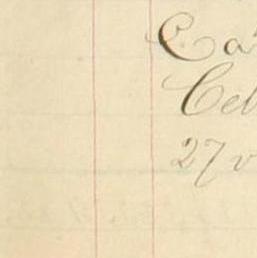 Ca
Cel
27 v